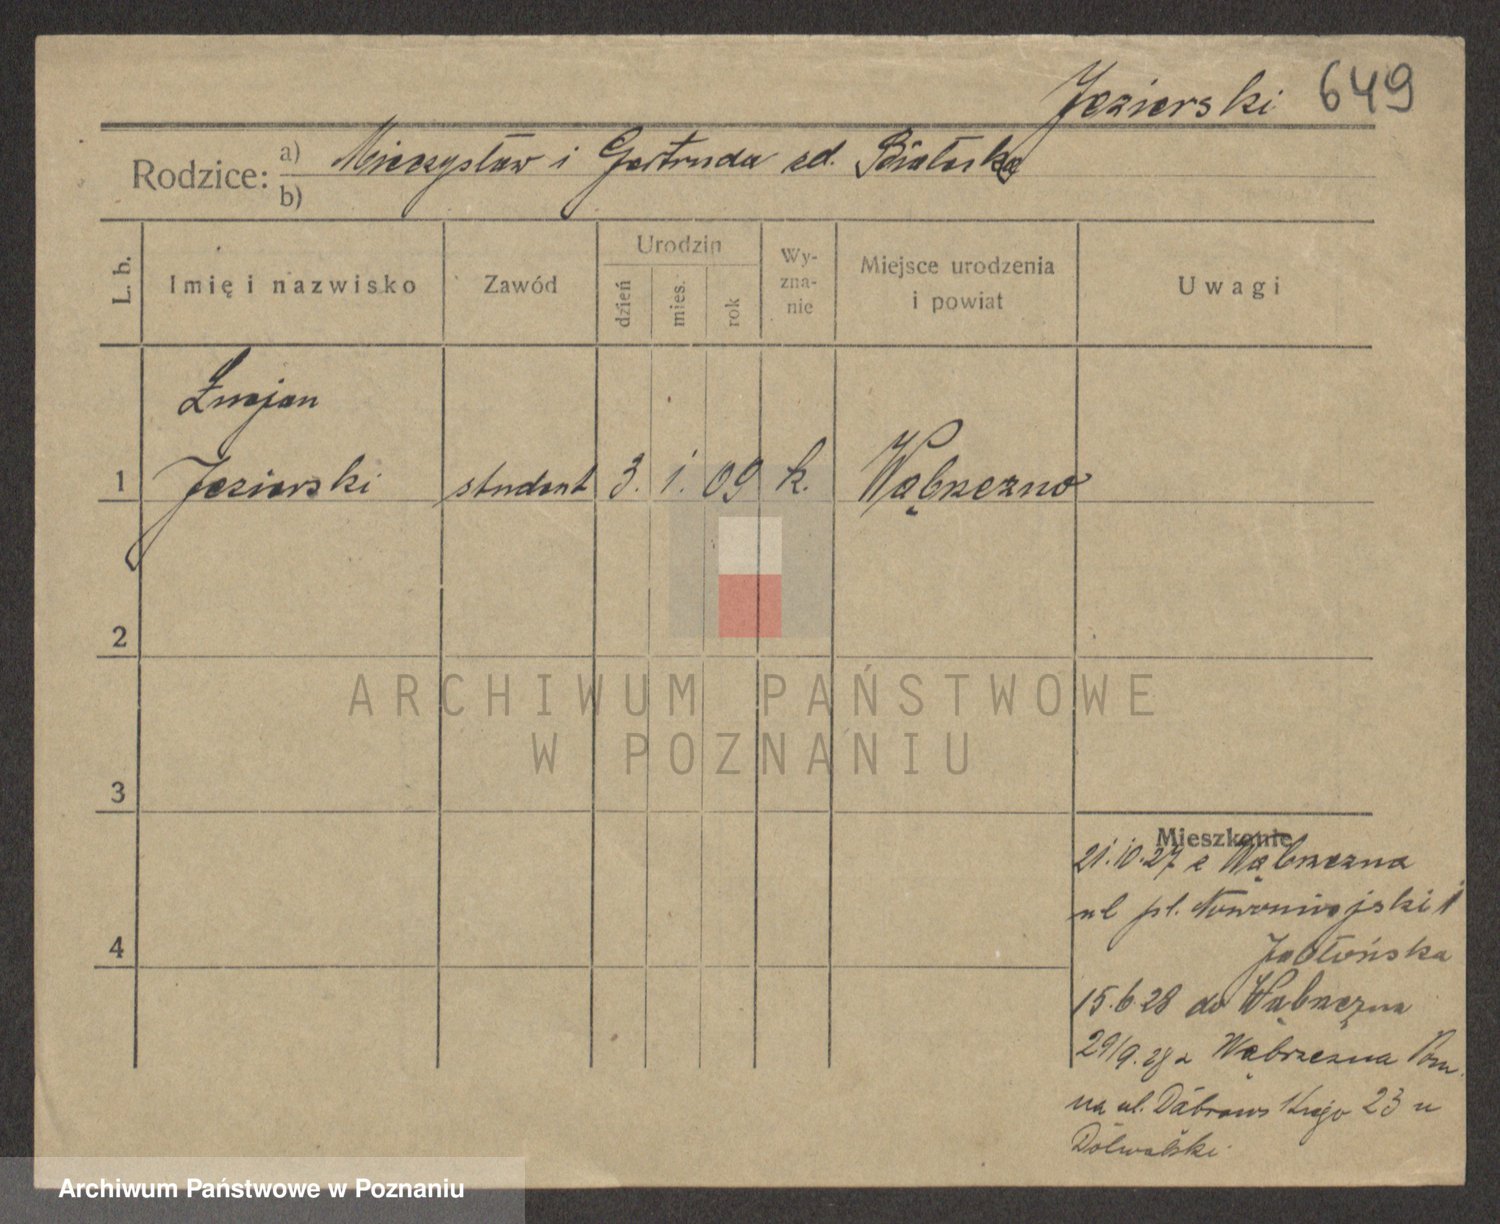 Jezierski 649
Rodzice: a) Mieczysław i Gertruda zd.
b)
L. b.
Imię i nazwisko
Zawód
Urodzin
dzień
mies.
rok
Wy-
zna-
nie
Miejsce urodzenia
i powiat
Uwagi
1 Jezierski student 3. 1. 09 k. Wąbrzezno
2
3
4
ARCHIWUM PAŃSTWOWE
W POZNANIU
Mieszkanie
21.10.27 z Wąbrzezna
ul pl. Nowomiejski 1
Jabłońska
15.6 28 do Wąbrzezna
29/9.28 z Wąbrzezna Pom.
na ul. Dąbrowskiego 23 u
Archiwum Państwowe w Poznaniu